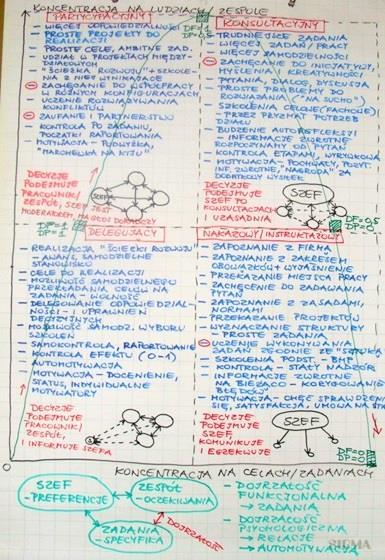 KONCENTRACJA NA LUDZIACH / ZESPOLE
PARTYCYPACYJNY
- WIĘCEJ ODPOWIEDZIALNOŚCI
- PROSTE PROJEKTY DO REALIZACJI
- PROSTE CELE, AMBITNE ZAD.
UDZIAŁ W PROJEKTACH MIĘDZY
DZIAŁOWYCH
- "ŚCIEŻKA ROZWOJU" + SZKOLE-
NIA Z NIEJ WYNIKAJĄCE
- ZACHĘCANIE DO WSPÓŁPRACY
W RÓŻNYCH KONFIGURACJACH
- UCZENIE ROZWIĄZYWANIA
KONFLIKTÓW
- ZAUFANIE I PARTNERSTWO
- KONTROLA PO ZADANIU,
POCZĄTKI RAPORTOWANIA
- MOTYWACJA - PODWYŻKA,
"MARCHEWKA NA KIJU"
DECYZJE
PODEJMUJE
PRACOWNIK/
ZESPÓŁ, SZEF JEST
MODERATOREM, MA GŁOS DORADCZY
KONSULTACYJNY
- TRUDNIEJSZE ZADANIA
- WIĘCEJ ZADAŃ/PRACY
- WIĘCEJ SAMODZIELNOŚCI
- ZACHĘCANIE DO INICJATYWY,
MYŚLENIA, KREATYWNOŚCI
- PYTANIA, DIALOG, DYSKUSJA
- PROSTE PROBLEMY DO
ROZWIĄZANIA ("NA SUCHO")
- SZKOLENIA CELOWE (FACHOWE)
- PRZEZ PRYZMAT POTRZEB
DZIAŁU
- BUDZENIE AUTOREFLEKSJI
- INFORMACJE ZWROTNE
ROZPOCZYNAM OD PYTAŃ
- KONTROLA ETAPAMI, WYRYWKOWA
- MOTYWACJA - POCHWAŁY, POZYT.
INF. ZWROTNE, "NAGRODA" ZA
DODATKOWY WYSIŁEK
DECYZJE
PODEJMUJE
SZEF PO
KONSULTACJACH
I UZASADNIA
SZEF
DELEGUJĄCY
- REALIZACJA "ŚCIEŻKI ROZWOJU"
- AWANS, SAMODZIELNE
STANOWISKO
- CELE DO REALIZACJI
- MOŻLIWOŚĆ SAMODZIELNEGO
PRZEKŁADANIA CELÓW NA
ZADANIA - WOLNOŚĆ
- DELEGOWANIE ODPOWIEDZIAL-
NOŚCI I UPRAWNIEŃ
DECYZYJNYCH
- MOŻLIWOŚĆ SAMODZ. WYBORU
SZKOLEŃ
- SAMOKONTROLA, RAPORTOWANIE
- KONTROLA EFEKTU (0-1)
- AUTOMOTYWACJA
- MOTYWACJA - DOCENIENIE,
STATUS, INDYWIDUALNE
MOTYWATORY
DECYZJE
PODEJMUJE
PRACOWNIK/
ZESPÓŁ,
I INFORMUJE SZEFA
NAKAZOWY/INSTRUKTAŻOWY
- ZAPOZNANIE Z FIRMĄ
- ZAPOZNANIE Z ZAKRESEM
OBOWIĄZKÓW + WYJAŚNIENIE
- PRZEKAZANIE MIEJSCA PRACY
- ZACHĘCENIE DO ZADAWANIA
PYTAŃ
- ZAPOZNANIE Z ZASADAMI,
NORMAMI
- PRZEKAZANIE PROJEKTÓW
- WYZNACZANIE STRUKTURY
- PROSTE ZADANIA
- UCZENIE WYKONYWANIA
ZADAŃ ZGODNIE ZE
- SZKOLENIA PODST. - BHP
- KONTROLA - STAŁY NADZÓR
- INFORMACJE ZWROTNE
NA BIEŻĄCO - KORYGOWANIE
BŁĘDÓW
- MOTYWACJA - CHĘĆ SPRAWDZENIA
SIĘ, SATYSFAKCJA, UMOWA NA
DECYZJE
PODEJMUJE
SZEF,
KOMUNIKUJE
I EGZEKWUJE
SZEF
KONCENTRACJA NA CELACH/ZADANIACH
SZEF
- PREFERENCJE
ZESPÓŁ
- OCZEKIWANIA
ZADANIA
- SPECYFIKA
DOJRZAŁOŚĆ
- DOJRZAŁOŚĆ
FUNKCJONALNA
→ ZADANIA
- DOJRZAŁOŚĆ
PSYCHOLOGICZNA
→ RELACJE
→ AUTOMOTYWACJA
SIGMA